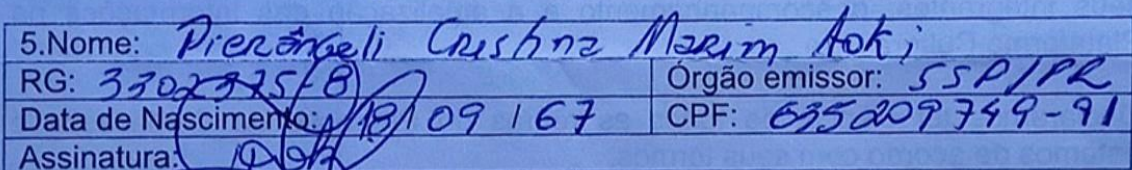 5.Nome: Pierângeli Cristina Marim Aoki
RG: 3302375-8 Órgão emissor: SSP/PR
Data de Nascimento: 18/09/67 CPF: 635209749-91
Assinatura: